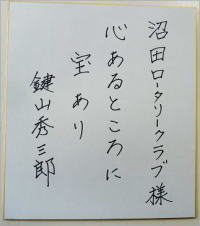 沼田ロータリークラブ様
心あるところに
宝あり
鍵山秀三郎